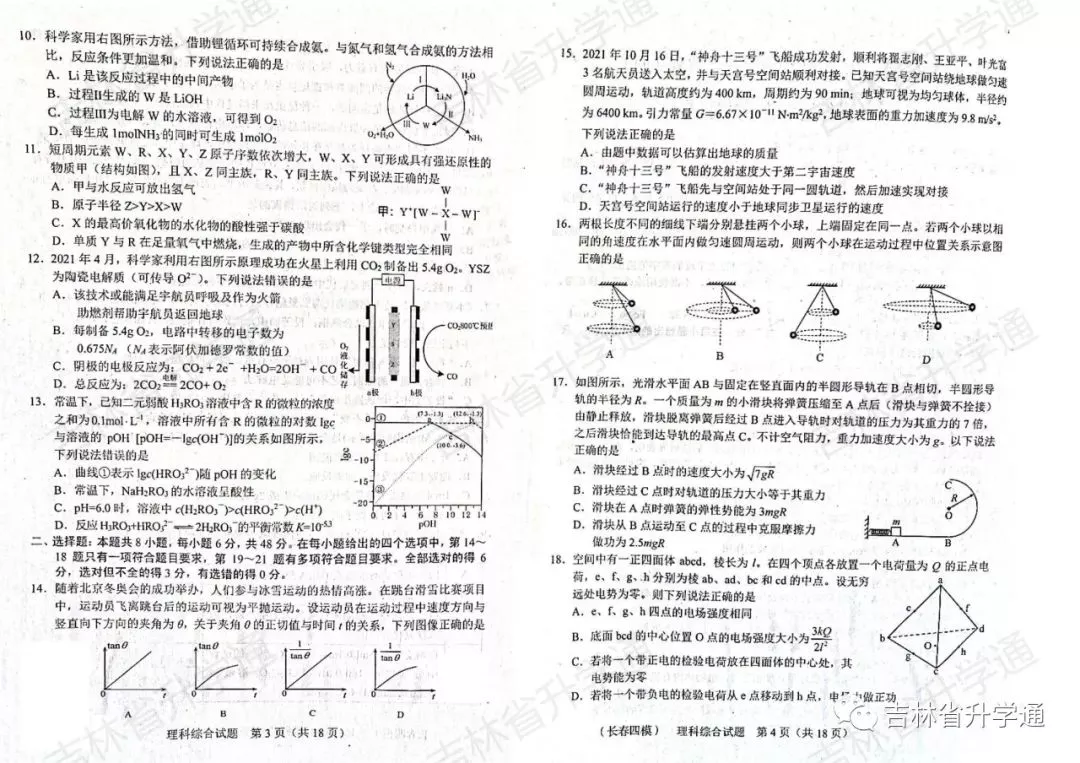 10. 科学家用右图所示方法，借助锂循环可持续合成氨。与氮气和氢气合成氨的方法相
比，反应条件更加温和。下列说法正确的是
A．Li 是该反应过程中的中间产物
B．过程Ⅱ生成的 W 是 LiOH
C．过程Ⅲ为电解 W 的水溶液，可得到 O₂
D．每生成 1molNH₃ 的同时可生成 1molO₂
N₂
H₂O
I
Li
Li₃N
Ⅲ
Ⅱ
W
O₂+H₂O
NH₃
11. 短周期元素 W、R、X、Y、Z 原子序数依次增大，W、X、Y 可形成具有强还原性的
物质甲（结构如图），且 X、Z 同主族，R、Y 同主族。下列说法正确的是
A．甲与水反应可放出氢气
B．原子半径 Z>Y>X>W
C．X 的最高价氧化物的水化物的酸性强于碳酸
D．单质 Y 与 R 在足量氧气中燃烧，生成的产物中所含化学键类型完全相同
W
甲: Y⁺[W－X－W]⁻
W
12. 2021 年 4 月，科学家利用右图所示原理成功在火星上利用 CO₂ 制备出 5.4g O₂。YSZ
为陶瓷电解质（可传导 O²⁻）。下列说法错误的是
A．该技术或能满足宇航员呼吸及作为火箭
助燃剂帮助宇航员返回地球
B．每制备 5.4g O₂，电路中转移的电子数为
0.675Nₐ （Nₐ 表示阿伏加德罗常数的值）
C．阴极的电极反应为：CO₂ + 2e⁻ +H₂O=2OH⁻ + CO
D．总反应为：2CO₂ 电解 2CO+ O₂
电源
O₂
液化储存
Y
S
Z
CO₂800℃预热
CO
a极
b极
13. 常温下，已知二元弱酸 H₂RO₃ 溶液中含 R 的微粒的浓度
之和为 0.1mol·L⁻¹，溶液中所有含 R 的微粒的对数 lgc
与溶液的 pOH [pOH=－lgc(OH⁻)]的关系如图所示，
下列说法错误的是
A．曲线①表示 lgc(HRO₃²⁻)随 pOH 的变化
B．常温下，NaH₂RO₃ 的水溶液呈酸性
C．pH=6.0 时，溶液中 c(H₂RO₃⁻)>c(HRO₃²⁻)>c(H⁺)
D．反应 H₃RO₃+HRO₃²⁻ ⇌ 2H₂RO₃⁻的平衡常数 K=10⁵·³
0
-5
-10
-15
-20
lgc
① (7.3,-1.3) (12.6,-1.3)
②
(10.0,-3.6)
③
0 2 4 6 8 10 12 14
pOH
二、选择题：本题共 8 小题，每小题 6 分，共 48 分。在每小题给出的四个选项中，第 14～
18 题只有一项符合题目要求，第 19～21 题有多项符合题目要求。全部选对的得 6
分，选对但不全的得 3 分，有选错的得 0 分。
14. 随着北京冬奥会的成功举办，人们参与冰雪运动的热情高涨。在跳台滑雪比赛项目
中，运动员飞离跳台后的运动可视为平抛运动。设运动员在运动过程中速度方向与
竖直向下方向的夹角为 θ，关于夹角 θ 的正切值与时间 t 的关系，下列图像正确的是
tanθ t A
tanθ t B
1/tanθ t C
1/tanθ t D
理科综合试题 第 3 页（共 18 页）
15. 2021 年 10 月 16 日，“神舟十三号”飞船成功发射，顺利将翟志刚、王亚平、叶光富
3 名航天员送入太空，并与天宫号空间站顺利对接。已知天宫号空间站绕地球做匀速
圆周运动，轨道高度约为 400 km，周期约为 90 min；地球可视为均匀球体，半径约
为 6400 km。引力常量 G=6.67×10⁻¹¹ N·m²/kg²，地球表面的重力加速度为 9.8 m/s²。
下列说法正确的是
A．由题中数据可以估算出地球的质量
B．“神舟十三号”飞船的发射速度大于第二宇宙速度
C．“神舟十三号”飞船先与空间站处于同一圆轨道，然后加速实现对接
D．天宫号空间站运行的速度小于地球同步卫星运行的速度
16. 两根长度不同的细线下端分别悬挂两个小球，上端固定在同一点。若两个小球以相
同的角速度在水平面内做匀速圆周运动，则两个小球在运动过程中位置关系示意图
正确的是
A B C D
17. 如图所示，光滑水平面 AB 与固定在竖直面内的半圆形导轨在 B 点相切，半圆形导
轨的半径为 R。一个质量为 m 的小滑块将弹簧压缩至 A 点后（滑块与弹簧不拴接）
由静止释放，滑块脱离弹簧后经过 B 点进入导轨时对轨道的压力为其重力的 7 倍，
之后滑块恰能到达导轨的最高点 C。不计空气阻力，重力加速度大小为 g。以下说法
正确的是
A．滑块经过 B 点时的速度大小为√7gR
B．滑块经过 C 点时对轨道的压力大小等于其重力
C．滑块在 A 点时弹簧的弹性势能为 3mgR
D．滑块从 B 点运动至 C 点的过程中克服摩擦力
做功为 2.5mgR
C
R
O
m
A
B
18. 空间中有一正四面体 abcd，棱长为 l。在四个顶点各放置一个电荷量为 Q 的正点电
荷，e、f、g、h 分别为棱 ab、ad、bc 和 cd 的中点。设无穷
远处电势为零。则下列说法正确的是
A．e、f、g、h 四点的电场强度相同
B．底面 bcd 的中心位置 O 点的电场强度大小为 3kQ/2l²
C．若将一个带正电的检验电荷放在四面体的中心处，其
电势能为零
D．若将一个带负电的检验电荷从 e 点移动到 h 点，电 力做正功
a
e
f
b
d
O
g
h
c
（长春四模） 理科综合试题 第 4 页（共 18 页）
吉林省升学通